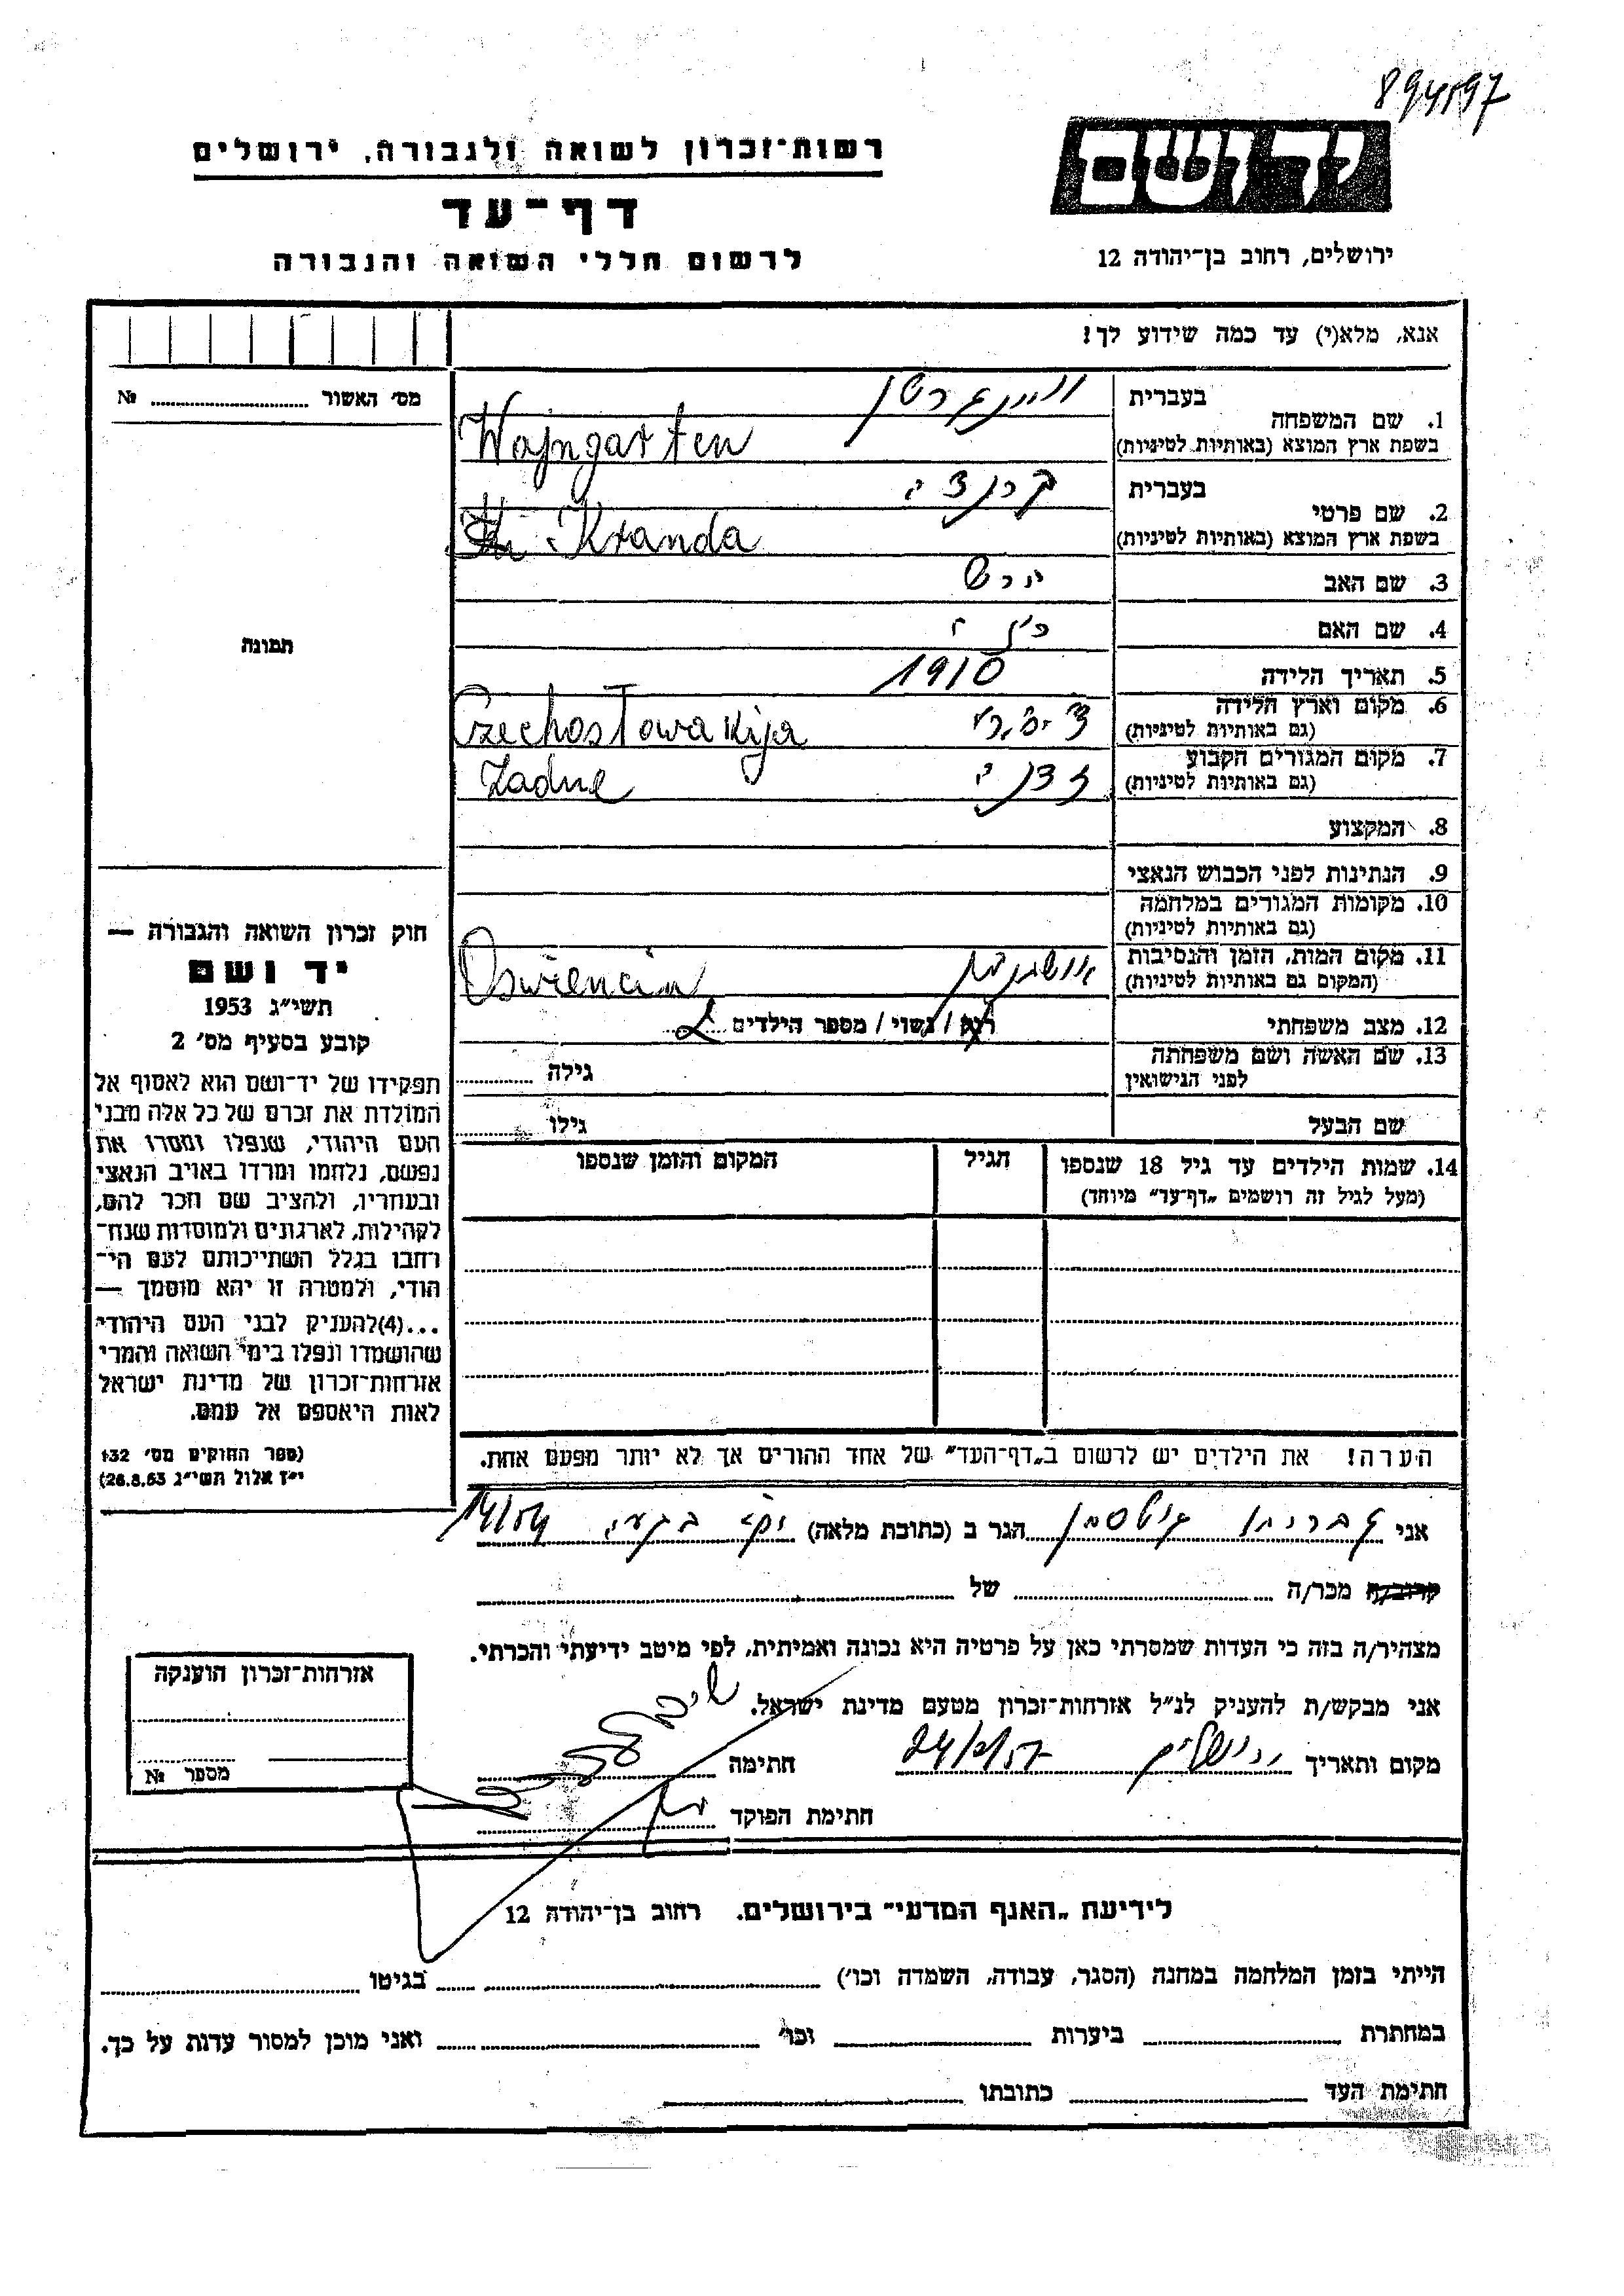 894597
יד ושם
רשות־זכרון לשואה ולגבורה, ירושלים
דף־עד
לרשום חללי השואה והגבורה
ירושלים, רחוב בן־יהודה 12
אנא, מלא(י) עד כמה שידוע לך!
מס׳ האשור № 
תמונה
1. שם המשפחה בעברית ויינגרטן
בשפת ארץ המוצא (באותיות לטיניות) Wajngarten
2. שם פרטי בעברית
בשפת ארץ המוצא (באותיות לטיניות) Kranda
3. שם האב הירש
4. שם האם
5. תאריך הלידה 1910
6. מקום וארץ הלידה
(גם באותיות לטיניות) Czechosłowakija
7. מקום המגורים הקבוע
(גם באותיות לטיניות) Zadne
8. המקצוע
9. הנתינות לפני הכבוש הנאצי
10. מקומות המגורים במלחמה
(גם באותיות לטיניות)
11. מקום המות, הזמן והנסיבות אושוינצים
(המקום גם באותיות לטיניות) Oswiencim
12. מצב משפחתי רוק / נשוי / מספר הילדים 2
13. שם האשה ושם משפחתה גילה
לפני הנישואין
שם הבעל גילו
14. שמות הילדים עד גיל 18 שנספו הגיל המקום והזמן שנספו
(מעל לגיל זה רושמים „דף־עד” מיוחד)
הערה! את הילדים יש לרשום ב„דף־העד” של אחד ההורים אך לא יותר מפעם אחת.
חוק זכרון השואה והגבורה —
יד ושם
תשי״ג 1953
קובע בסעיף מס׳ 2
תפקידו של יד־ושם הוא לאסוף אל
המולדת את זכרם של כל אלה מבני
העם היהודי, שנפלו ומסרו את
נפשם, נלחמו ומרדו באויב הנאצי
ובעוזריו, ולהציב שם וזכר להם,
לקהילות, לארגונים ולמוסדות שנח־
רבו בגלל השתייכותם לעם הי־
הודי, ולמטרה זו יהא מוסמך —
...(4)להעניק לבני העם היהודי
שהושמדו ונפלו בימי השואה והמרי
אזרחות־זכרון של מדינת ישראל
לאות היאספם אל עמם.
(ספר החוקים מס׳ 132
י״ז אלול תשי״ג 26.8.53)
אני הגר ב (כתובת מלאה) 14/154
קרוב/ה מכר/ה של
מצהיר/ה בזה כי העדות שמסרתי כאן על פרטיה היא נכונה ואמיתית, לפי מיטב ידיעתי והכרתי.
אני מבקש/ת להעניק לנ״ל אזרחות־זכרון מטעם מדינת ישראל.
מקום ותאריך ירושלים חתימה
חתימת הפוקד
אזרחות־זכרון הוענקה
מספר №
לידיעת „האגף המדעי” בירושלים. רחוב בן־יהודה 12
הייתי בזמן המלחמה במחנה (הסגר, עבודה, השמדה וכו׳) בגיטו
במחתרת ביערות וכו׳ ואני מוכן למסור עדות על כך.
חתימת העד כתובתו